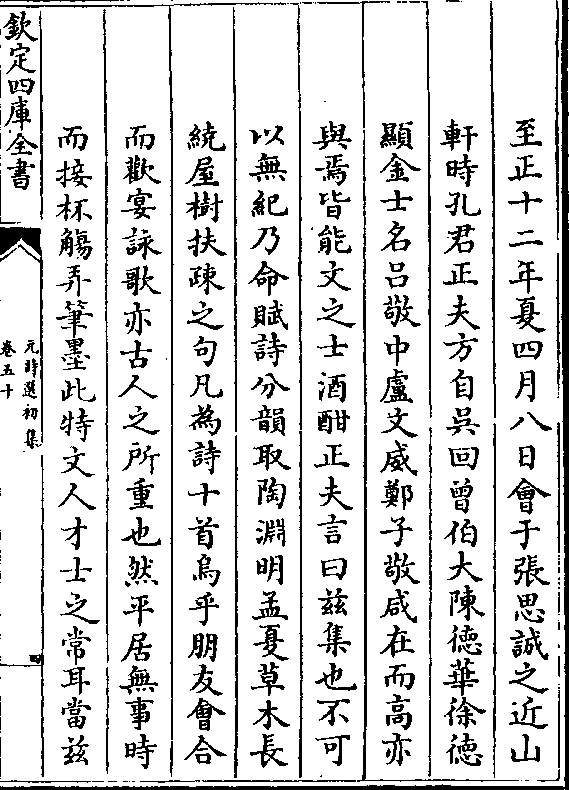 至正十二年夏四月八日會于張思誠之近山
軒時孔君正夫方自吳回曾伯大陳徳華徐徳
顯金士名吕敬中盧文威鄭子敬咸在而髙亦
與焉皆能文之士酒酣正夫言曰兹集也不可
以無紀乃命賦詩分韻取陶淵明孟夏草木長
繞屋樹扶疎之句凡為詩十首烏乎朋友會合
而歡宴詠歌亦古人之所重也然平居無事時
而接杯觴弄筆墨此特文人才士之常耳當兹
欽定四庫全書
元詩選初集
卷五十
四